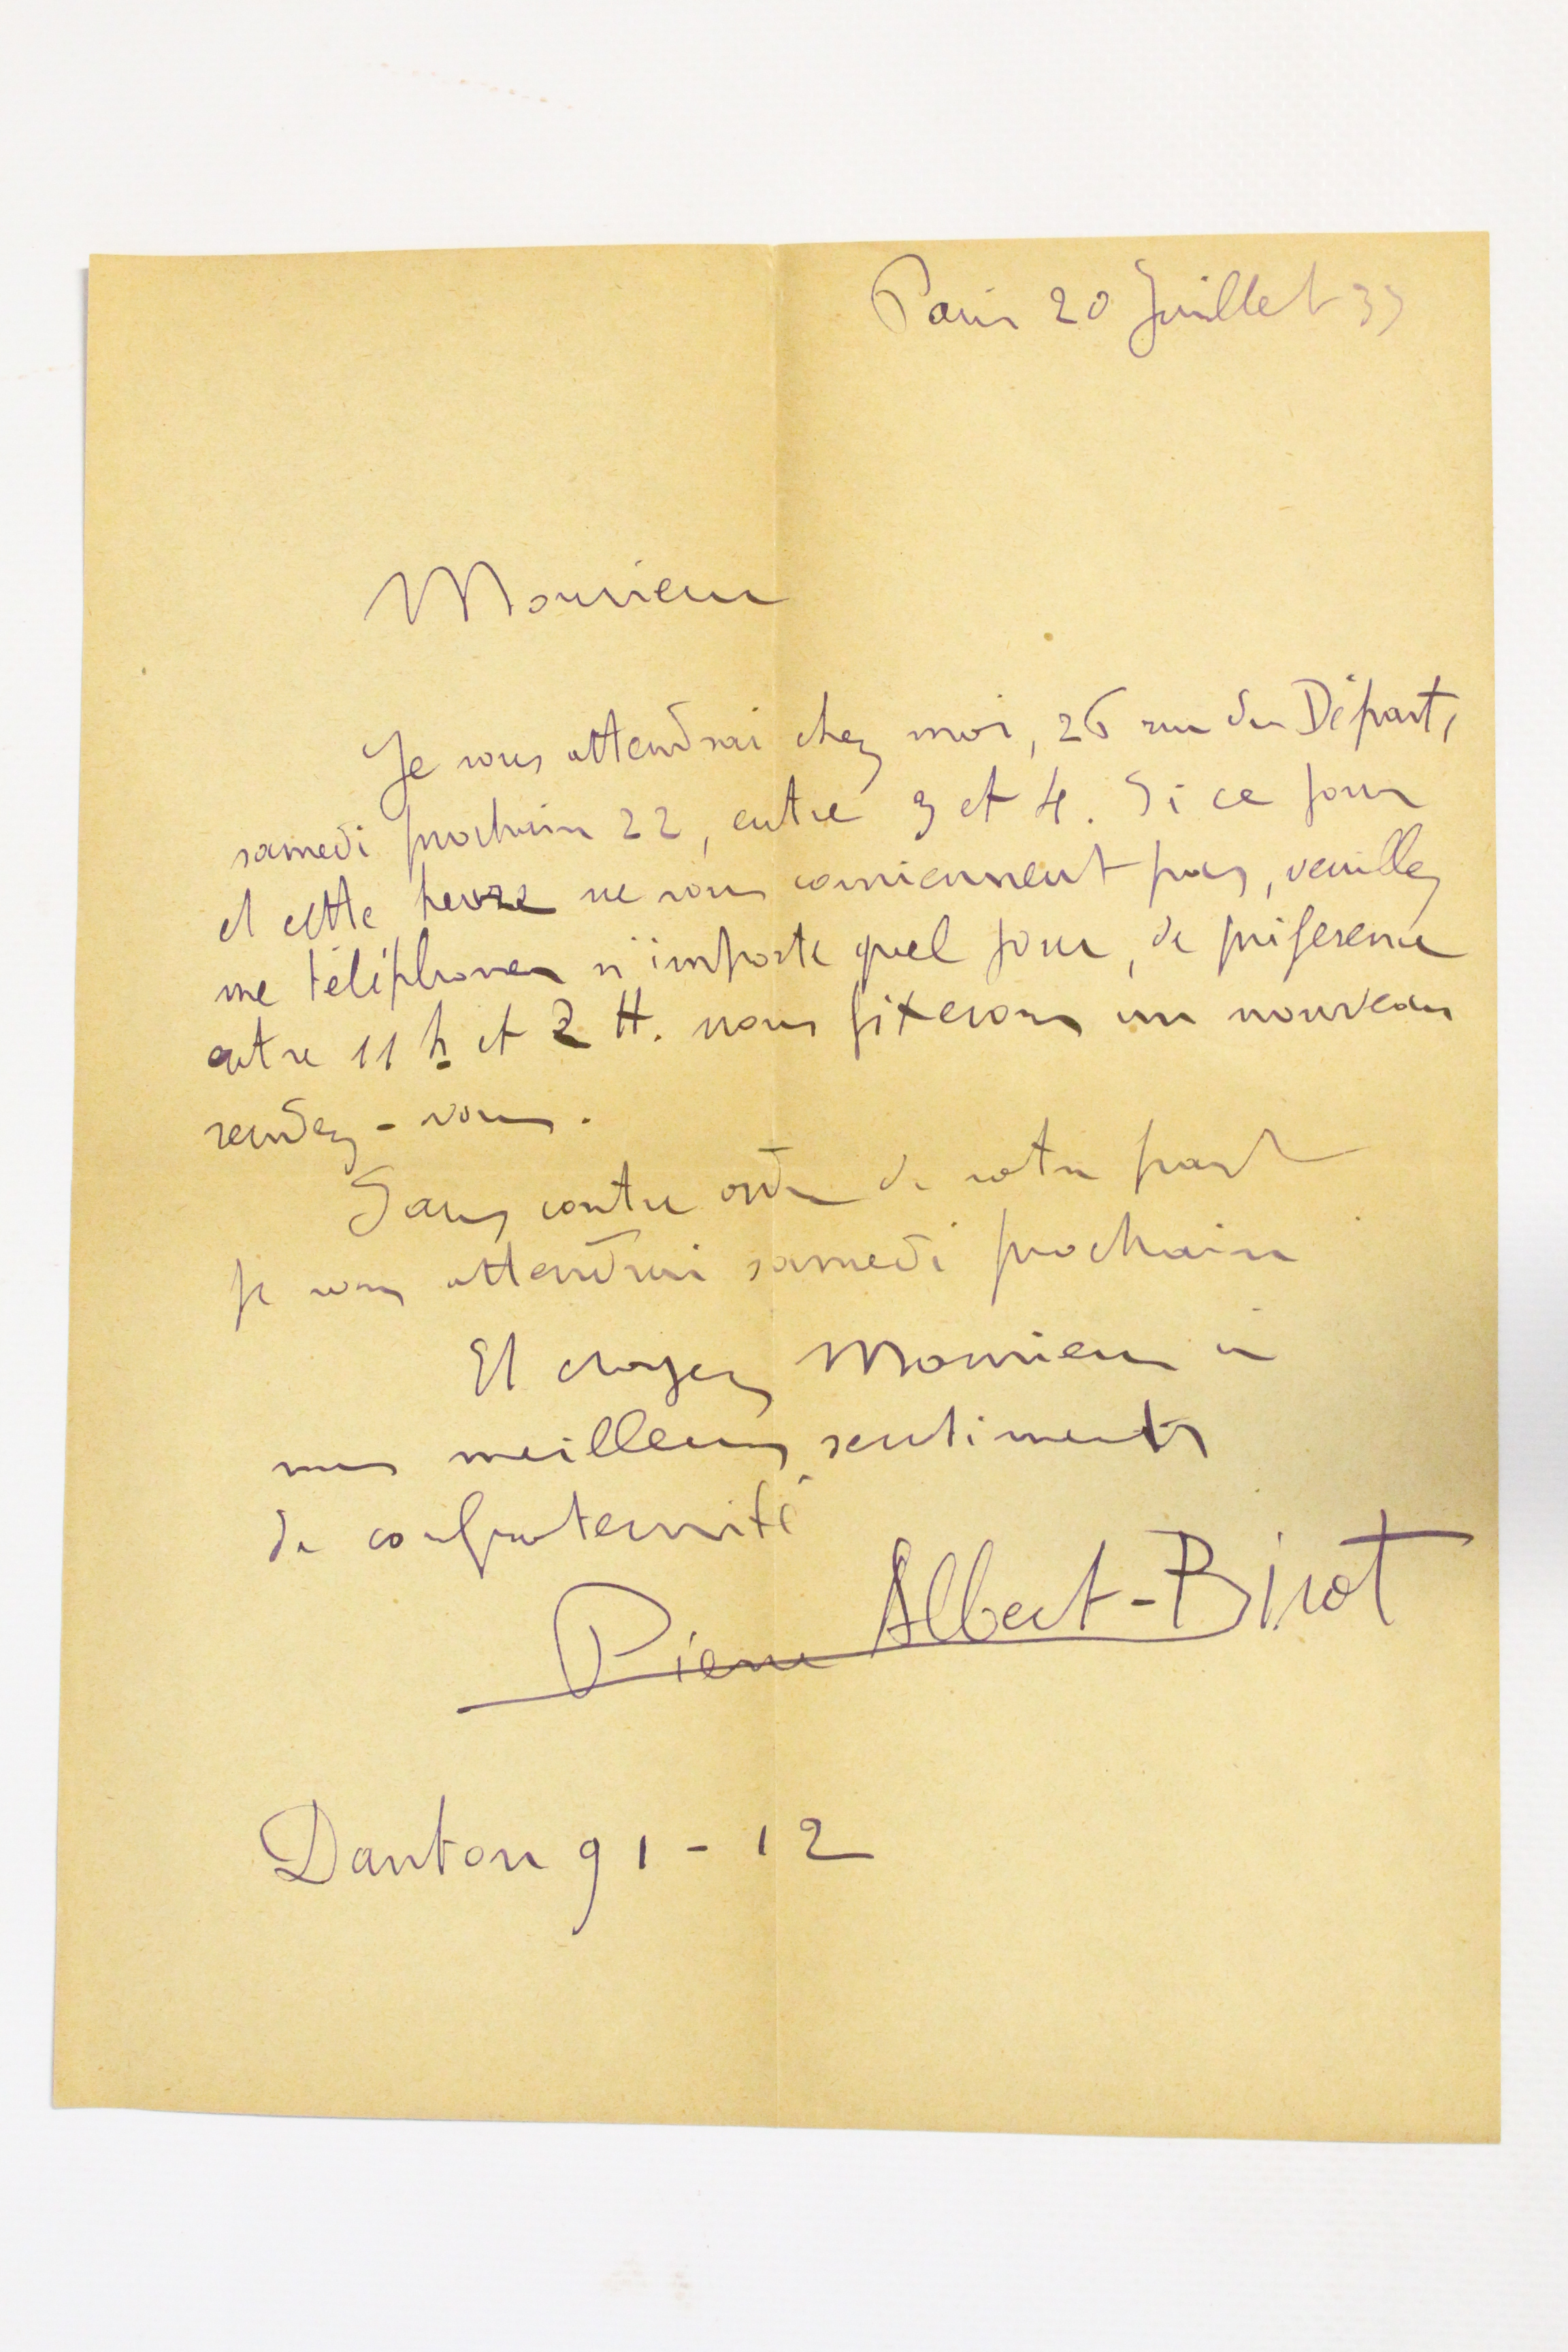 Paris 20 Juillet 33
Monsieur
Je vous attendrai chez moi, 26 rue du Départ,
samedi prochain 22, entre 3 et 4. Si ce jour
et cette heure ne vous conviennent pas, veuillez
me téléphoner n'importe quel jour, de préférence
entre 11 h et 2 H. nous fixerons un nouveau
rendez-vous.
Sans contre ordre de votre part
je vous attendrai samedi prochain
Et croyez Monsieur à
mes meilleurs sentiments
de confraternité
Pierre Albert-Birot
Danton 91-12